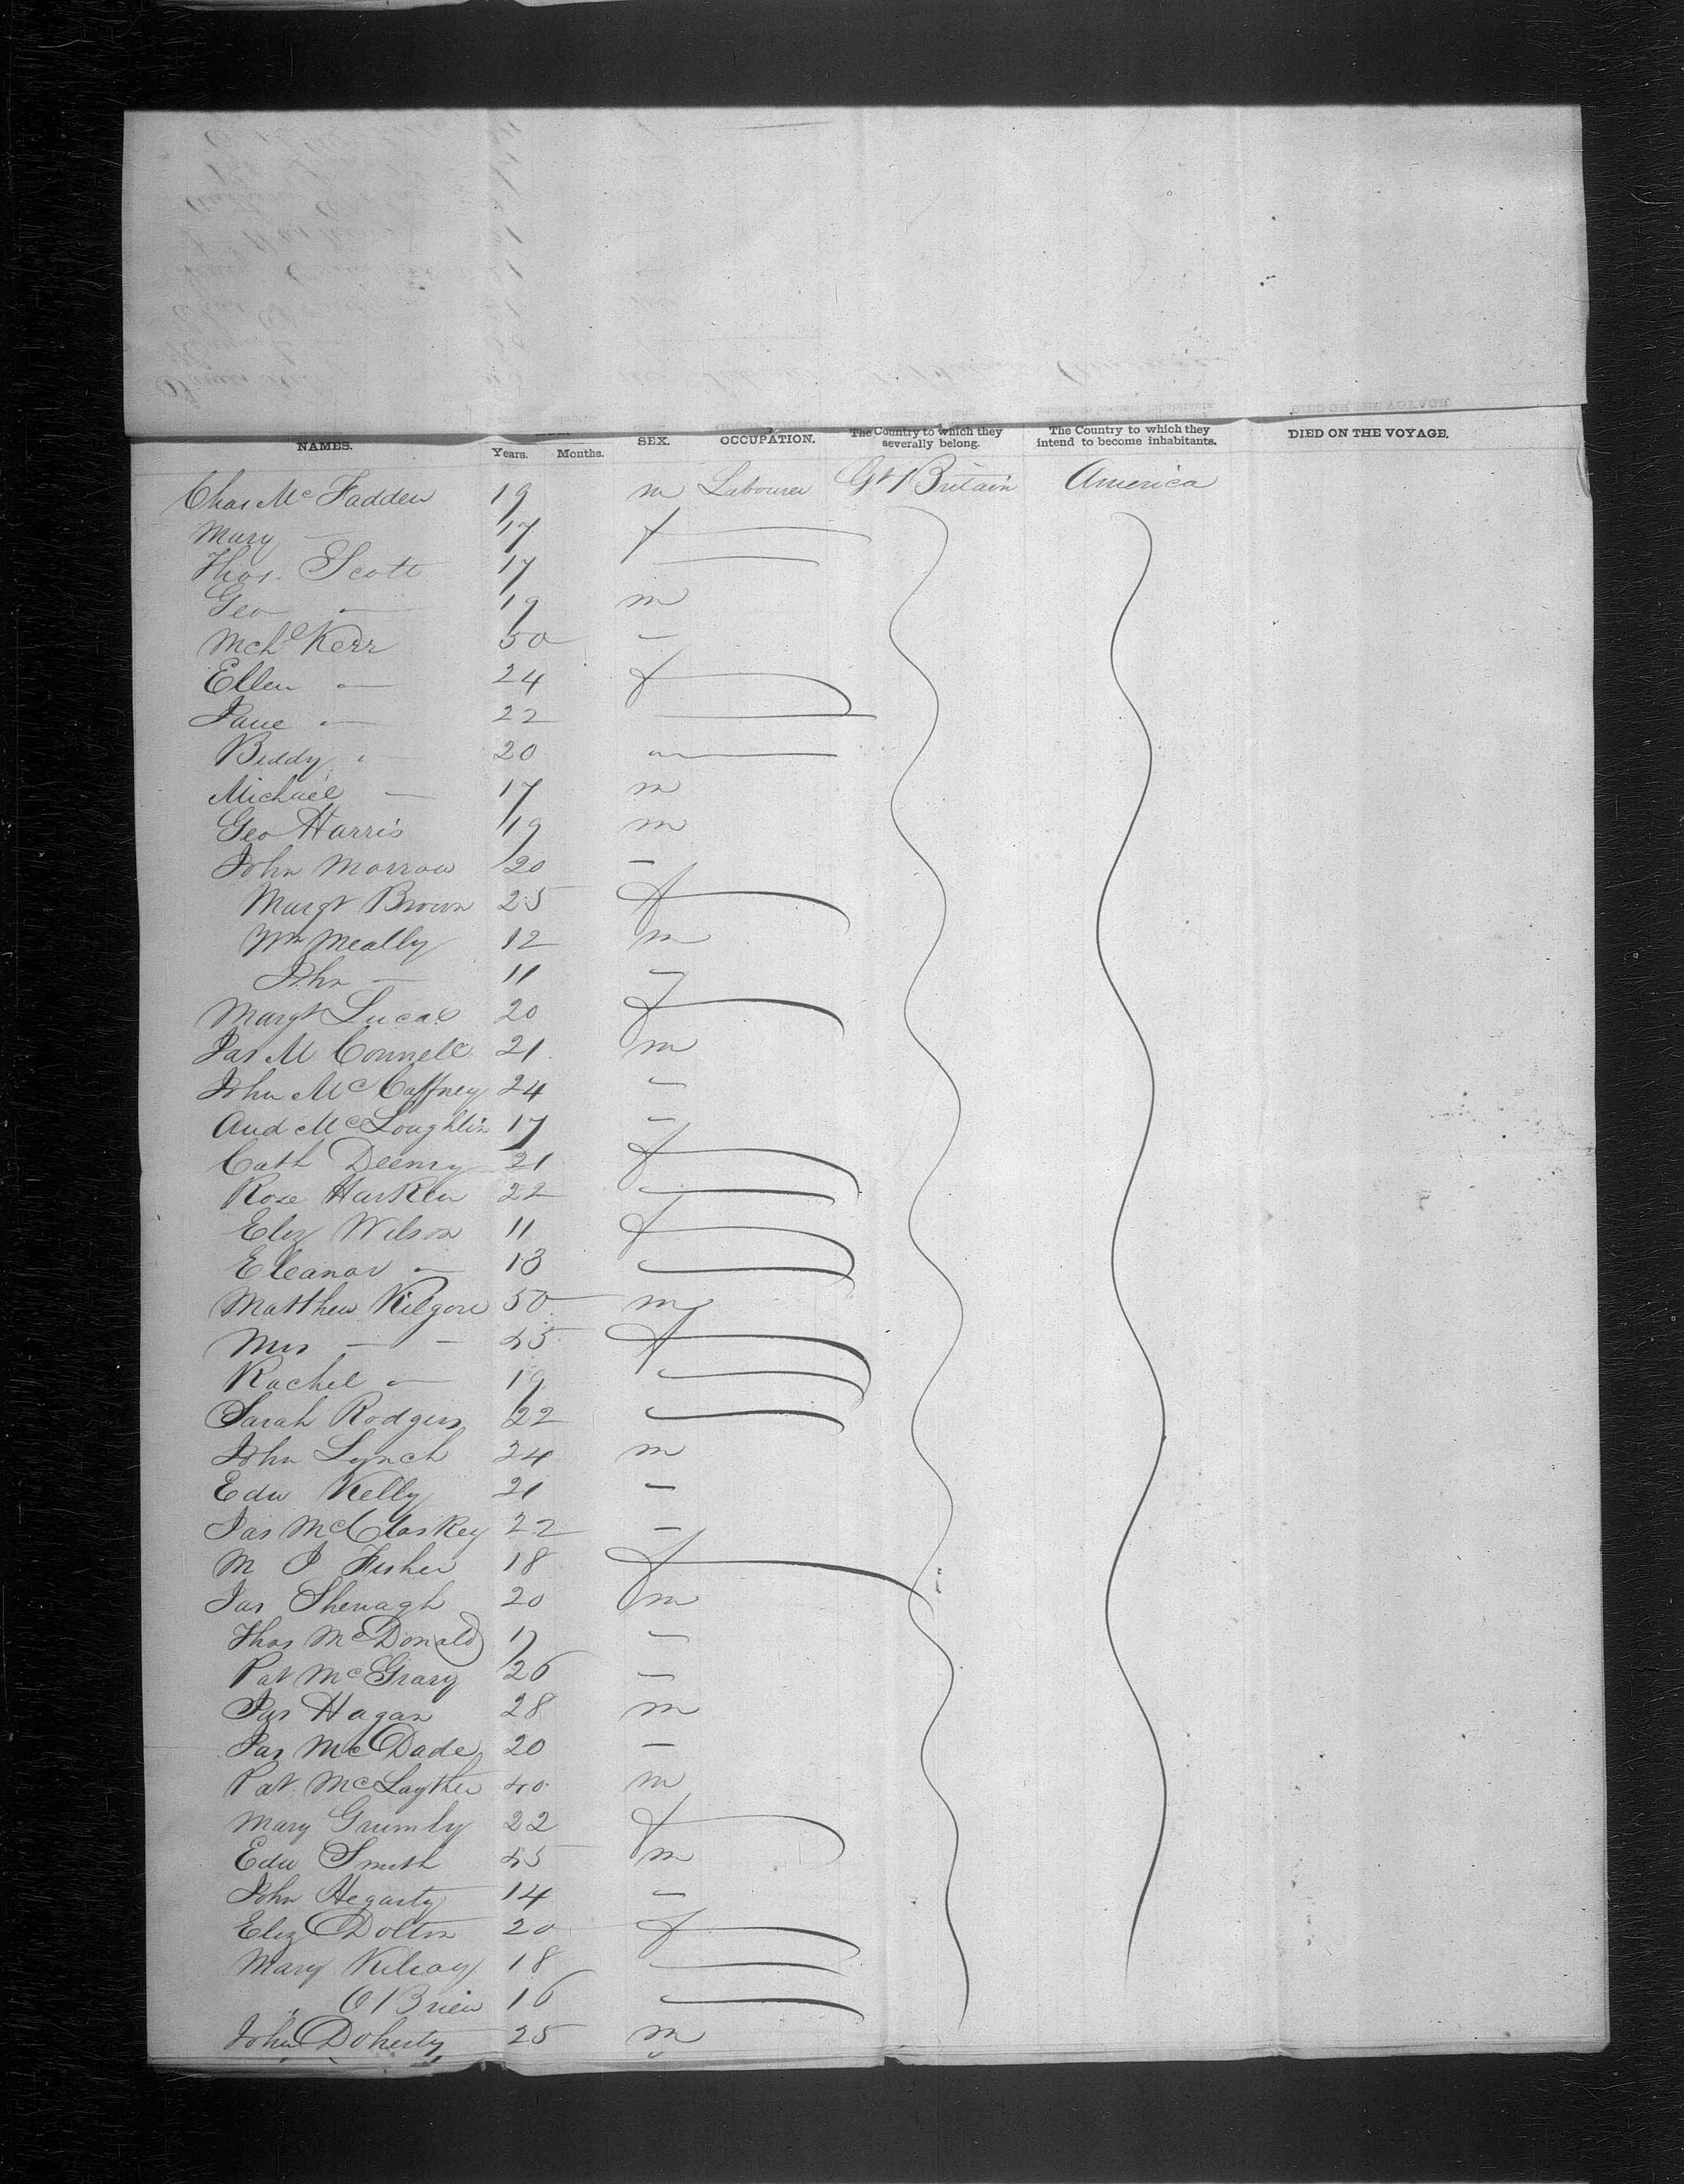 NAMES. Years. Months. SEX. OCCUPATION. The Country to which they severally belong. The Country to which they intend to become inhabitants. DIED ON THE VOYAGE.
Chas Mc Fadden 19 m Labourer Gt Britain America
Mary — 17 f —
Thos. Scott 17 —
Geo — 19 m
Mchl Kerr 50 —
Ellen — 24 f
Jane — 22 —
Biddy — 20 —
Michael — 17 m
Geo Harris 19 m
John Morrow 20 —
Margt Brown 25 f
Wm Meally 12 m
John — 11 —
Margt Lucas 20 f
Jas Mc Connell 21 m
John Mc Caffney 24 —
And McLoughlin 17 —
Cath Deeny 21 f
Rose Harken 22 —
Eliz Wilson 11 f
Eleanor — 13 —
Matthew Kilgore 50 m
Mrs — — 45 f
Rachel — 19 —
Sarah Rodgers 22 —
John Lynch 24 m
Edw Kelly 21 —
Jas McCloskey 22 —
M J Fisher 18 f
Jas Shenagh 20 m
Thos McDonald 17 —
Pat McGrary 26 —
Jas Hagan 28 m
Jas McDade 20 —
Pat. McLayther 40 m
Mary Grumly 22 f
Edw Smith 45 m
John Hegarty 14 —
Eliz Dolton 20 f
Mary Kilroy 18 —
" O'Brien 16 —
John Doherty 25 m